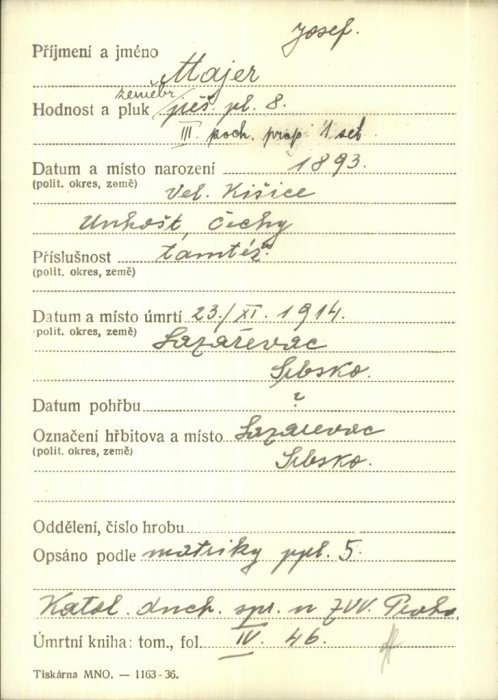 Josef.
Příjmení a jméno Majer
zeměbr.
Hodnost a pluk pěš. pl. 8.
III. poch. prap. 1 set
Datum a místo narození 1893.
(polit. okres, země) Vel. Kišice
Unhošť, Čechy
Příslušnost tamtéž
(polit. okres, země)
Datum a místo úmrtí 23./XI. 1914.
(polit. okres, země) Lazařevac
Srbsko.
Datum pohřbu ?
Označení hřbitova a místo Lazarevac
(polit. okres, země) Srbsko.
Oddělení, číslo hrobu
Opsáno podle matriky ppl. 5.
Katol. duch. spr. u ZVV. Praha.
Úmrtní kniha: tom., fol. IV. 46.
Tiskárna MNO. — 1163-36.